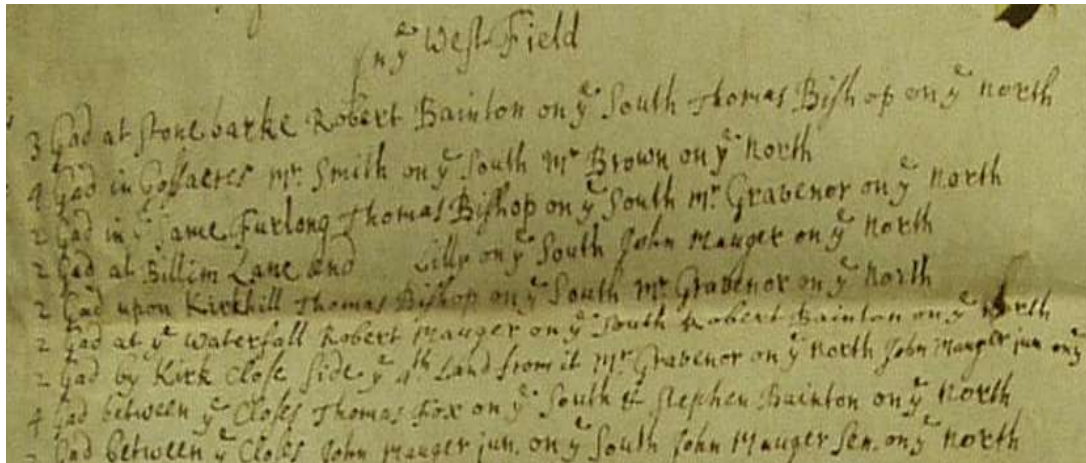 In yᵉ West Field
3 Gad at Stonebarke Robert Bainton on yᵉ South Thomas Bishop on yᵉ North
4 Gad in Gossacres Mr. Smith on yᵉ South Mr Brown on yᵉ North
2 Gad in yᵉ same Furlong Thomas Bishop on yᵉ South Mr. Gravenor on yᵉ North
2 Gad at Billim Lane end Lilly on yᵉ South John Mauger on yᵉ North
2 Gad upon Kirkhill Thomas Bishop on yᵉ South Mr. Gravenor on yᵉ North
2 Gad at yᵉ Waterfall Robert Mauger on yᵉ South Robert Bainton on yᵉ North
2 Gad by Kirk Close side yᵉ 4th Land from it Mr. Gravenor on yᵉ North John Mauger jun on yᵉ
4 Gad between yᵉ Closes Thomas Fox on yᵉ South & Stephen Bainton on yᵉ North
Gad between yᵉ Closes John Mauger jun. on yᵉ South John Mauger Sen. on yᵉ North